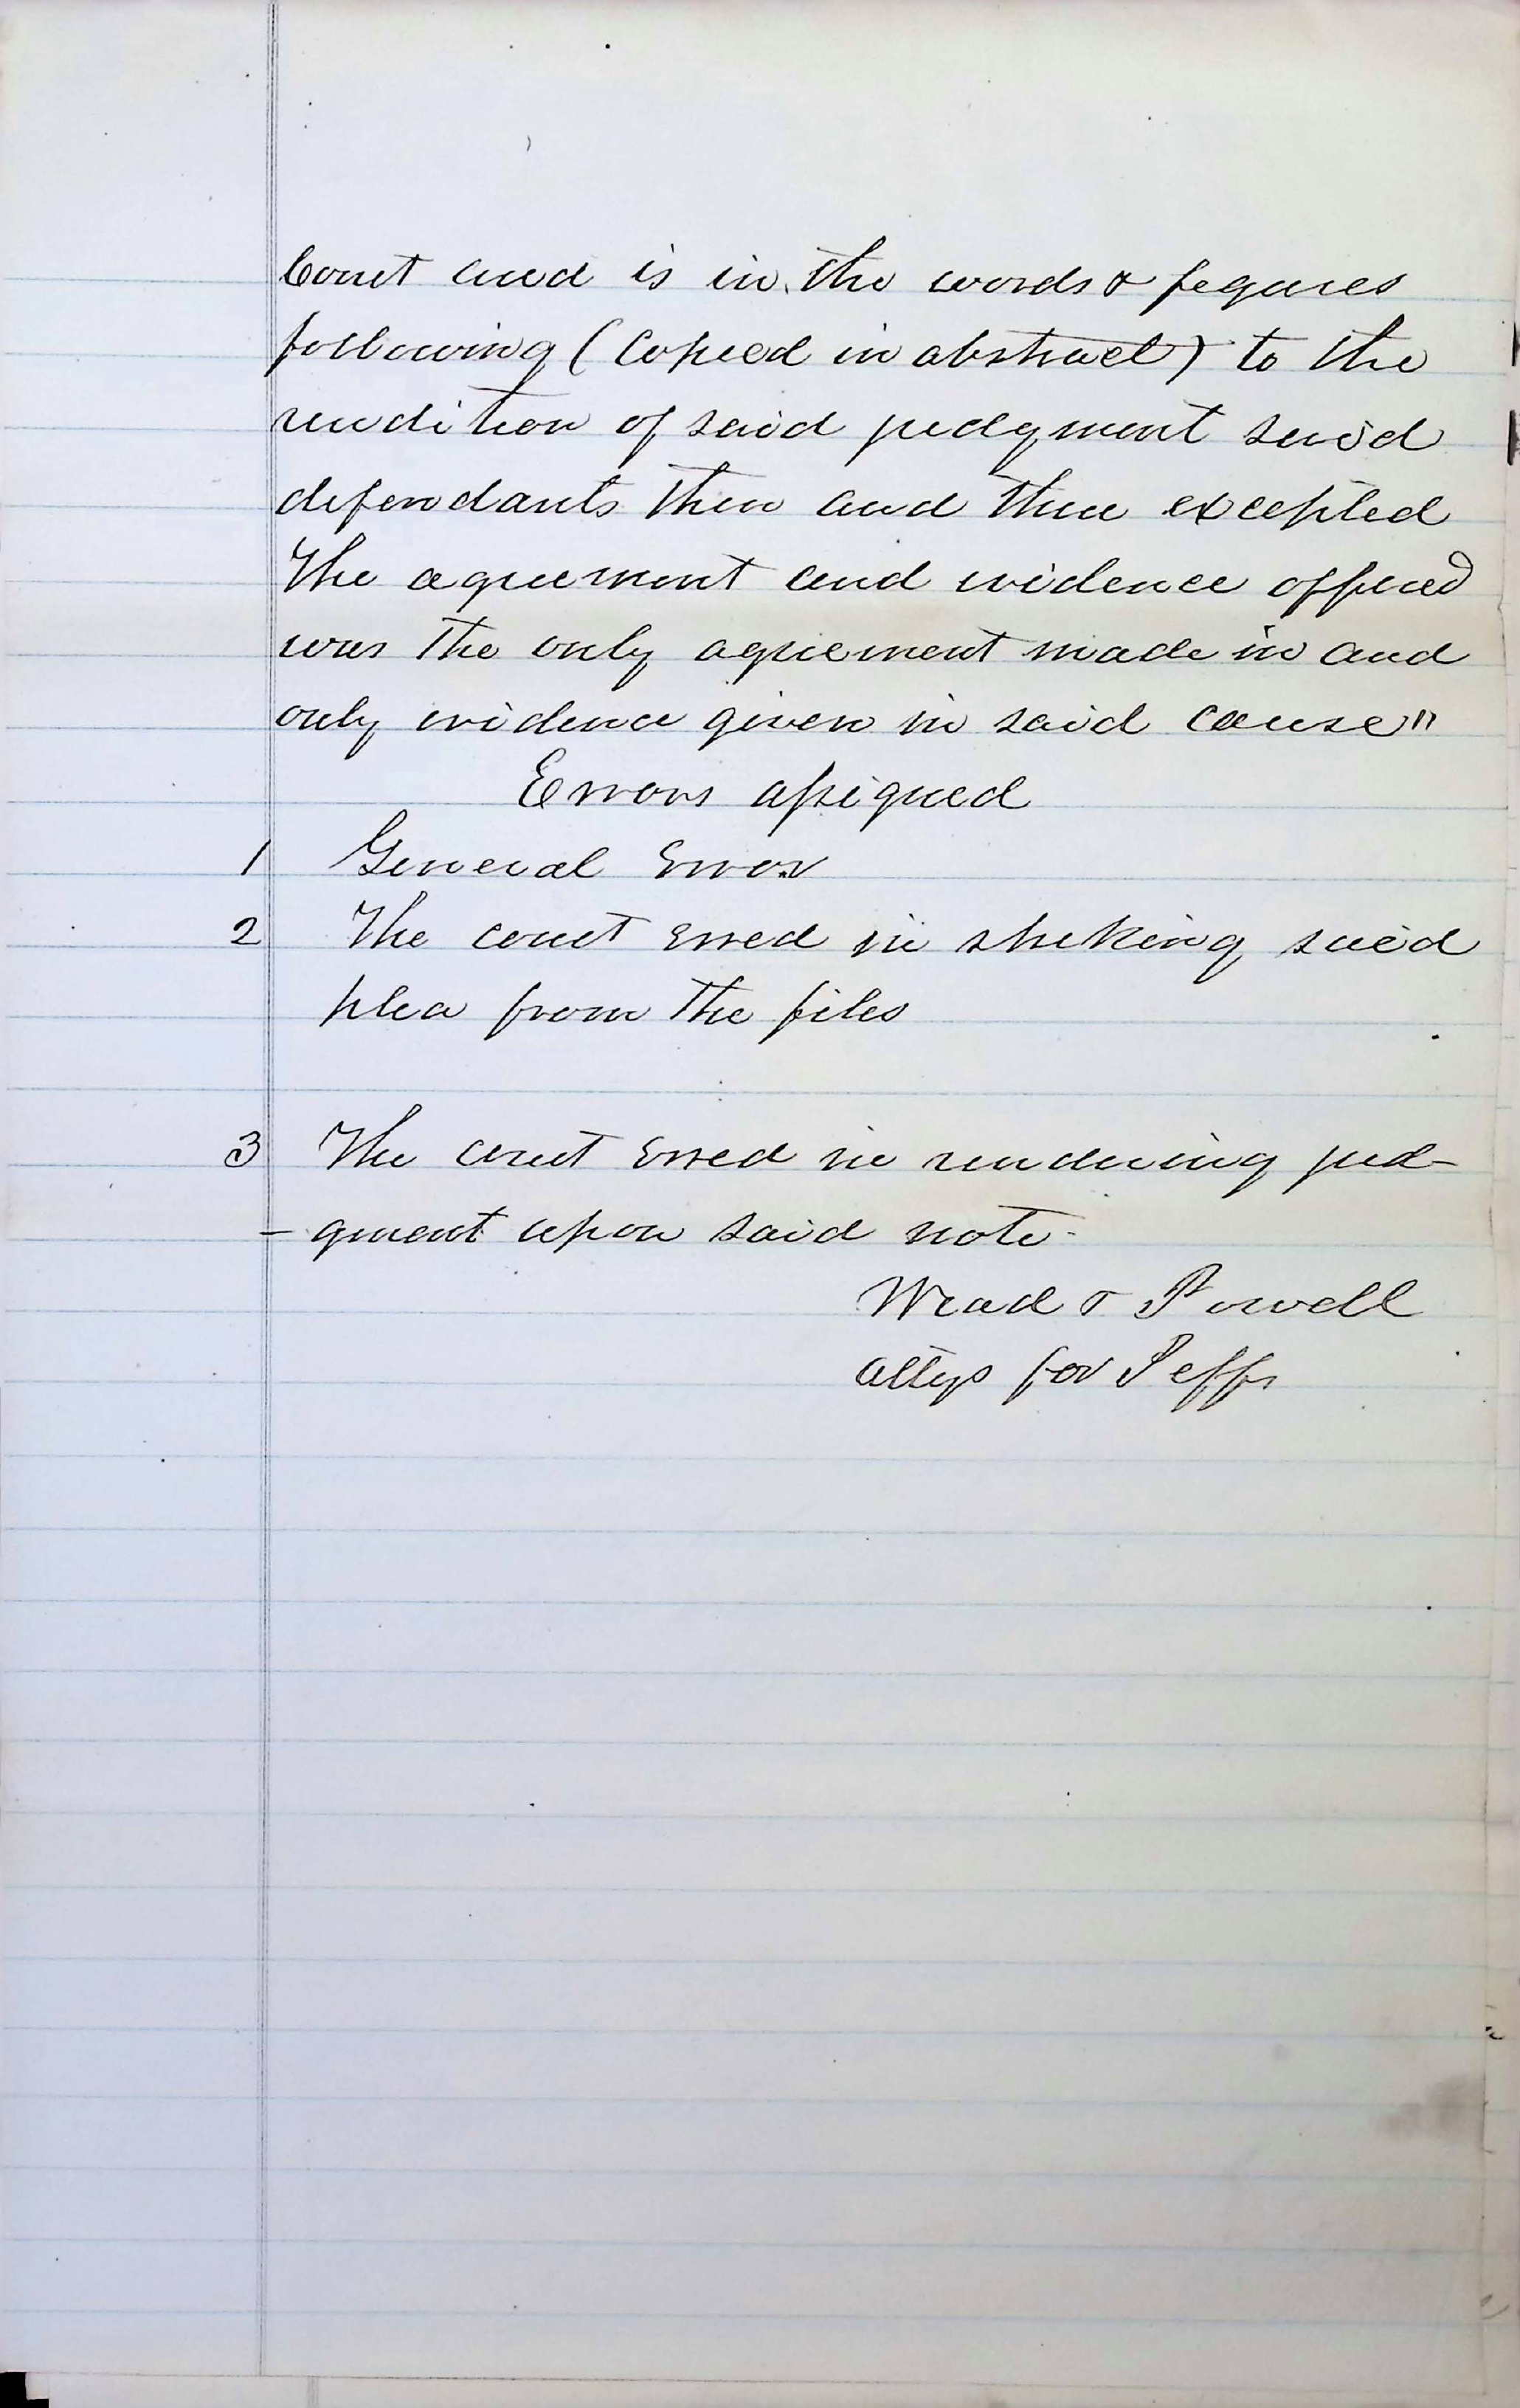 Court and is in the words & figures
following (Copied in abstract) to the
rendition of said judgment said
defendants then and there excepted
The agreement and evidence offered
was the only agreement made in and
only evidence given in said cause"
Errors assigned
1 General Error
2 The court erred in striking said
plea from the files
3 The court erred in rendering jud-
-gment upon said note-
Wead & Powell
attys for Peffs